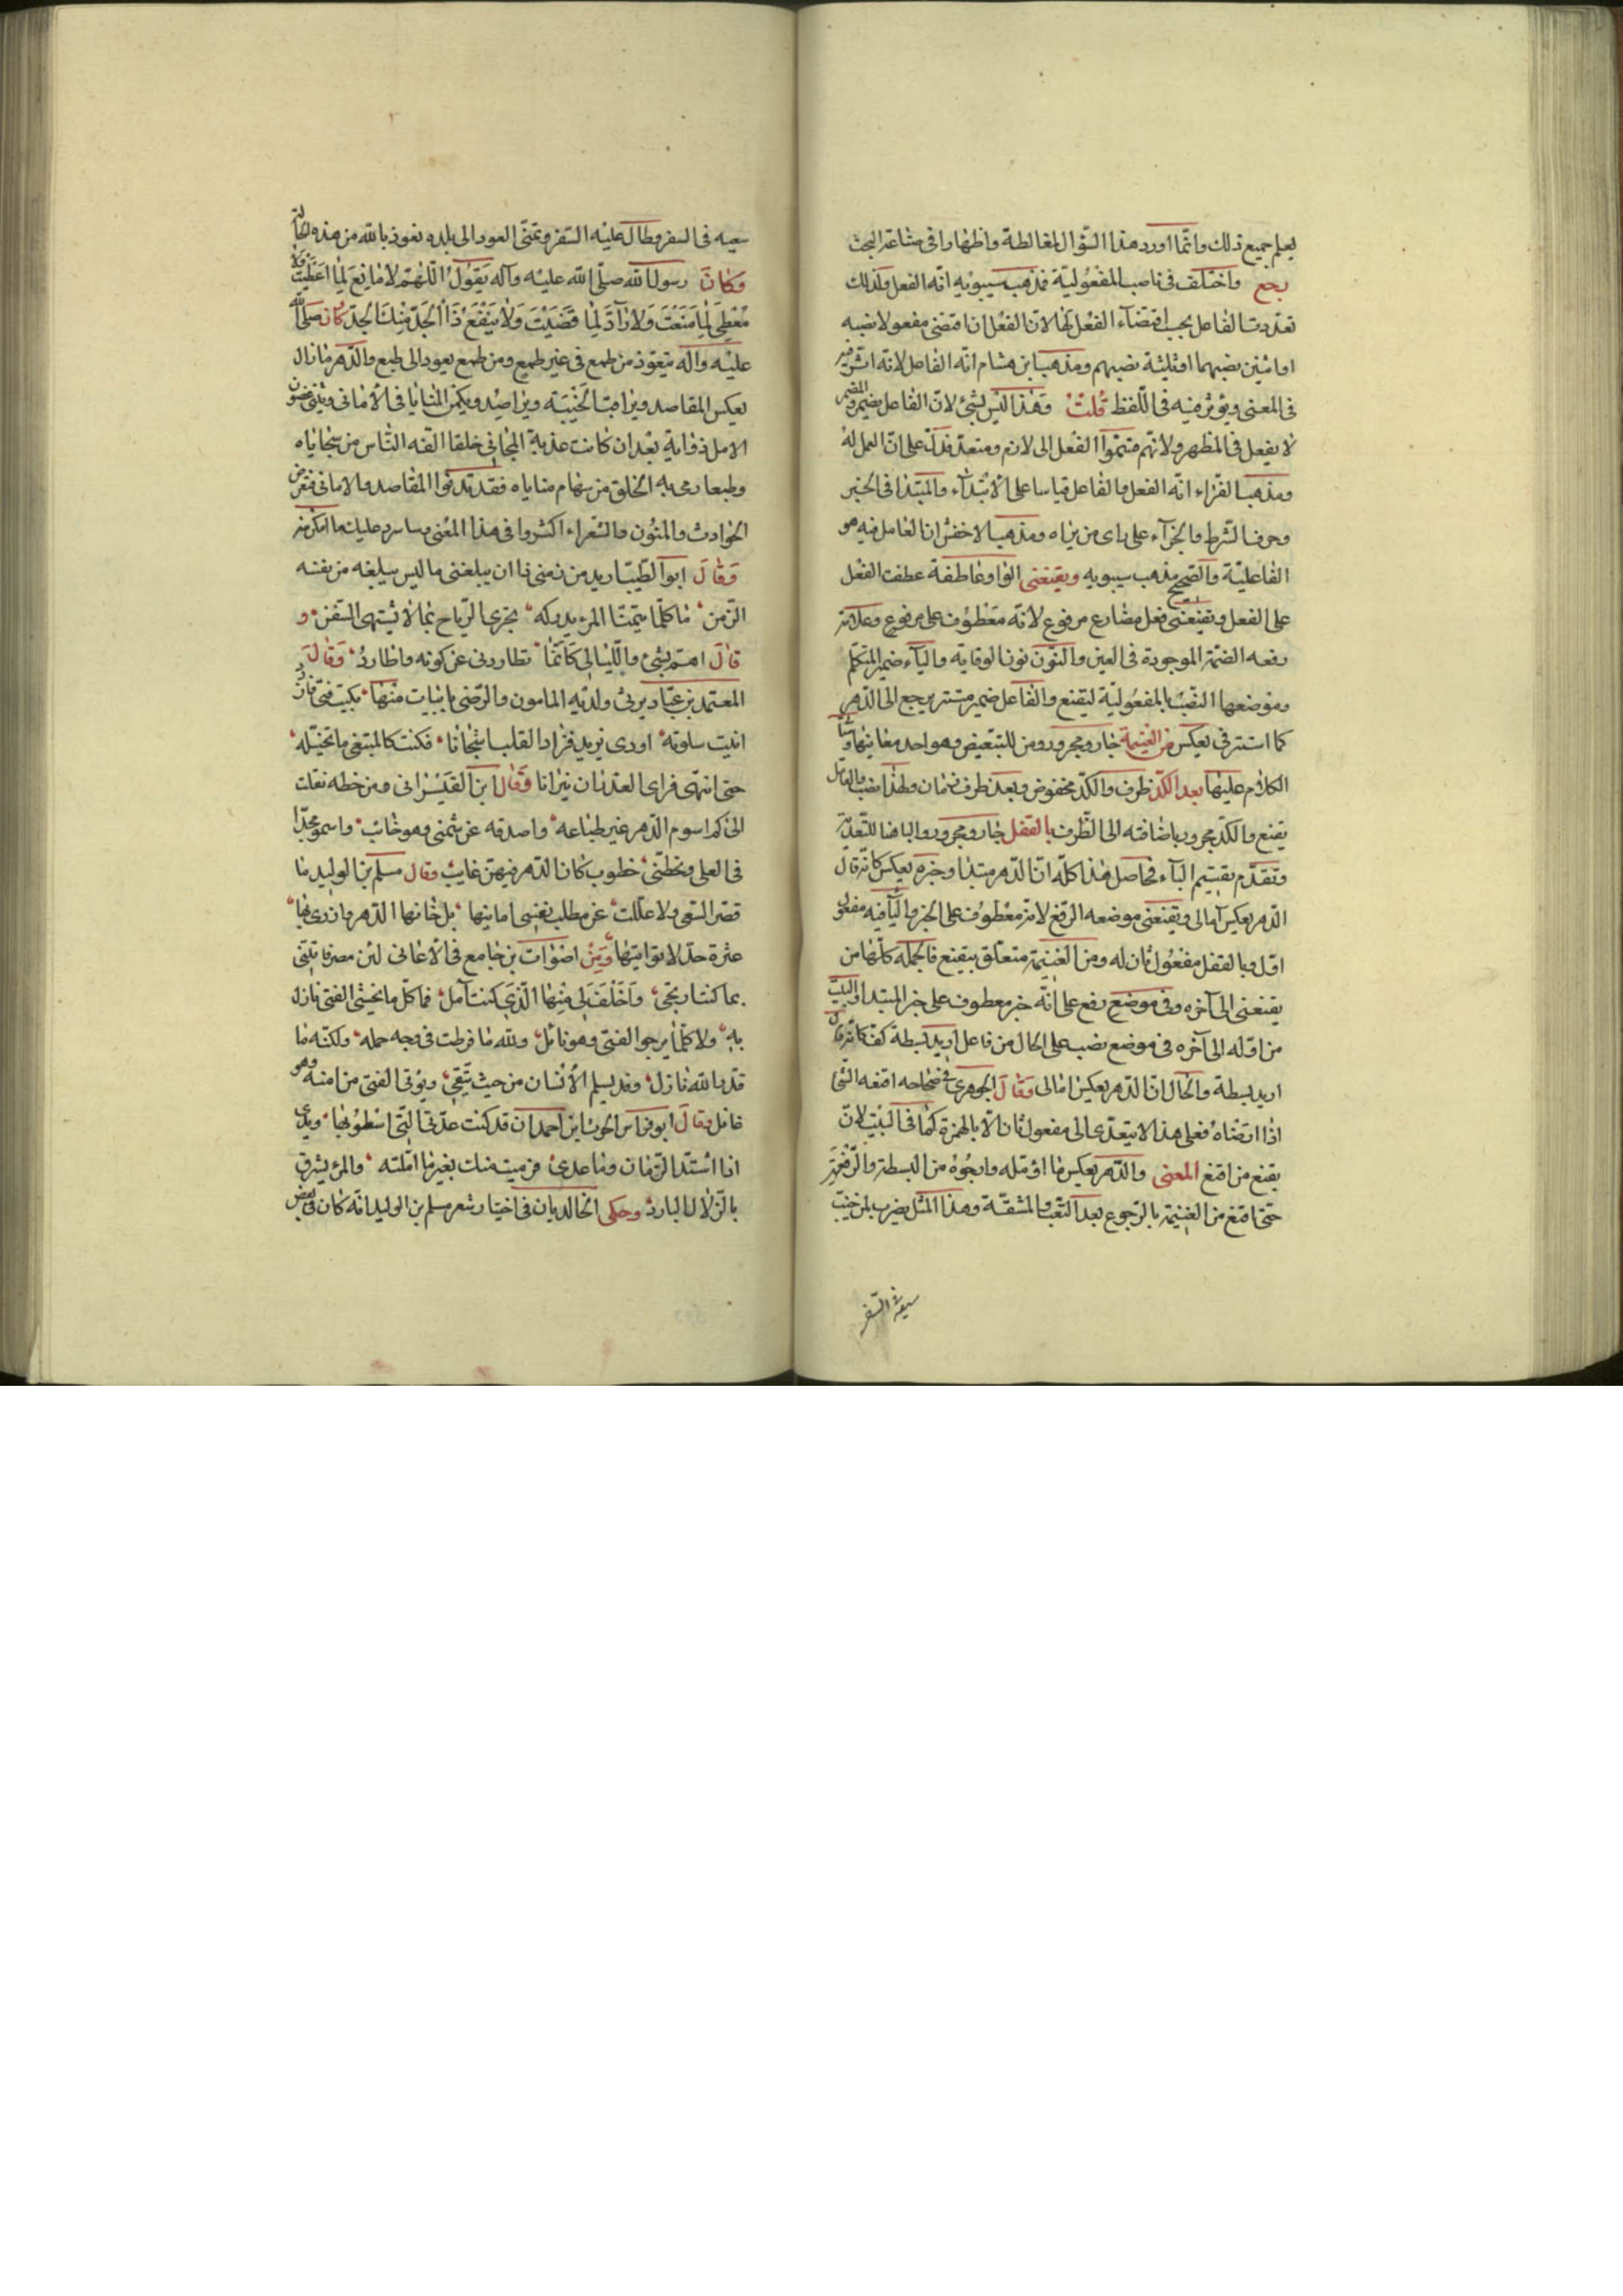 ليعلم جميع ذلك وانما اورد هذا السؤال لمغالطة واظهارا فى مشاغر البحث
رجع واختلف فى ناصب المفعولية فمذهب سيبويه انه الفعل ولذلك
تعددت الفاعل بحسب اقتضاء الفعل لها لان الفعل ان اقتضى مفعولا نصبه
او اثنين نصبهما او ثلثة نصبهم ومذهب ابن هشام انه الفاعل لانه اثر فيه
فى المعنى ويؤثر فيه فى اللفظ قلت وهذا ليس بشئ لان الفاعل يضمر والمضمر
لا يعمل فى المظهر ولانهم قسموا الفعل الى لازم ومتعد فدل على ان العمل له
ومذهب الفراء انه الفعل والفاعل قياسا على الابتداء والمبتدا فى الخبر
وحرف الشرط والجزاء على راى من يراه ومذهب الاخفش ان العامل فيه هو
الفاعلية والصحيح مذهب سيبويه ويقنعنى الواو عاطفة عطفت الفعل
على الفعل ويقنعنى فعل مضارع مرفوع لانه معطوف على مرفوع وعلامة
رفعه الضمة الموجودة فى العين والنون نون الوقاية والياء ضمير المتكلم
وموضعها النصب بالمفعولية ليقنع والفاعل ضمير مستتر يرجع الى الدهر
كما استتر فى يعكس من الغنيمة جار ومجرور ومن للتبعيض وهو احد معانيها وسياتى
الكلام عليها بعد الكد ظرف والكد مخفوض وبعد ظرف زمان ولهذا نصب والعامل
يقنع والكد مجرور باضافته الى الظرف بالقفل جار ومجرور والباء هنا للتعدية
وتقدم تقسيم الباء فحاصل هذا كله ان الدهر مبتدا وخبره يعكس كانه قال
الدهر يعكس آمالى ويقنعنى موضعه الرفع لانه معطوف على الخبر والياء فيه مفعول
اول وبالقفل مفعول ثان له ومن الغنيمة متعلق بيقنع فالجملة كلها من
يقنعنى الى آخره وفى موضع رفع على انه خبر معطوف على خبر المبتدا والبيت
من اوله الى آخره فى موضع نصب على الحال من فاعل اريد بسطة كف كانه قال
اريد بسطة والحال ان الدهر يعكس امالى وقال الجوهرى فى صحاحه اقنعه الشئ
اذا ارضاه فعلى هذا لا يتعدى الى مفعول ثان الا بالهمزة كما فى البيت لان
يقنع من اقنع المعنى والدهر يعكس ما اؤمله وارجوه من البسطة والرفهة
حتى اقنع من الغنيمة بالرجوع بعد التعب والمشقة وهذا المثل يضرب لمن خيب
سعيه فى السفر
سعيه فى السفر وطال عليه السفر وتمنى العود الى بلده نعوذ بالله من هذه الحالة
وكان رسول الله صلى الله عليه وآله يقول اللهم لا مانع لما اعطيت ولا
معطى لما منعت ولا راد لما قضيت ولا ينفع ذا الجد منك الجد كان صلى الله
عليه وآله يتعوذ من طمع فى غير طمع ومن طمع يعود الى طبع والدهر ما زال
يعكس المقاصد ويراقب الخيبة ويراصد ويكمن المنايا فى الامانى ويثنى غصون
الامل ذواية بعد ان كانت عذبة المجانى خلقا الفه الناس من سجاياه
وطبعا رمى به الخلق من سهام مناياه فقد تدقوا المقاصد والامانى
الحوادث والمنون والشعراء اكثروا فى هذا المعنى وساسرد عليك ما امكن منه
وقال ابو الطيب اريد من زمنى ذا ان يبلغنى ما ليس يبلغه من نفسه
الزمن ما كل ما يتمنى المرء يدركه تجرى الرياح بما لا يشتهى السفن و
قال اهم بشئ والليالى كانها تطاردنى عن كونه واطارد وقال
المعتمد بن عباد يرثى ولديه المامون والرضى بابيات منها بكيت فتى فاذ
انيت سلوته اودى يزيد فزاد القلب اشجانا فكنت كالمبتغى ما تخيله
حتى انتهى فراى الغدران نيرانا وقال ابن القيسرانى ومن خطه نقلت
الى كم اسوم الدهر غير طباعه واصدقه عن شيمتى وهو خائب واسمو مجدا
فى العلى وتحطنى خطوب كان الدهر فيهن غايب وقال مسلم بن الوليد ما
قصر السعى ولا عللت عن مطلب نفسى امانيها بل خانها الدهر وازرى بها
عثرة جد لا تواتيها ومن اصوات بن جامع فى الاغانى لئن مصر فاتتنى
بما كنت ارتجى واخلفنى منها الذى كنت آمل فما كل ما يخشى الفتى نازل
به ولا كل ما يرجو الفتى وهو نائل ولله ما فرطت فى وجه حيله ولكنه ما
قدر الله نازل وقد يسلم الانسان من حيث يتقى ويؤتى الفتى من امنه وهو
غافل وقال ابو فراس الحرث ابن احمدان قد كنت عدتى التى اسطو بها ويدى
اذا اشتد الزمان وساعدى فرميت منك بغير ما املته والمرء يشرق
بالزلال البارد وحكى الخالديان فى اختيار شعر مسلم بن الوليد انه كان فى بعض